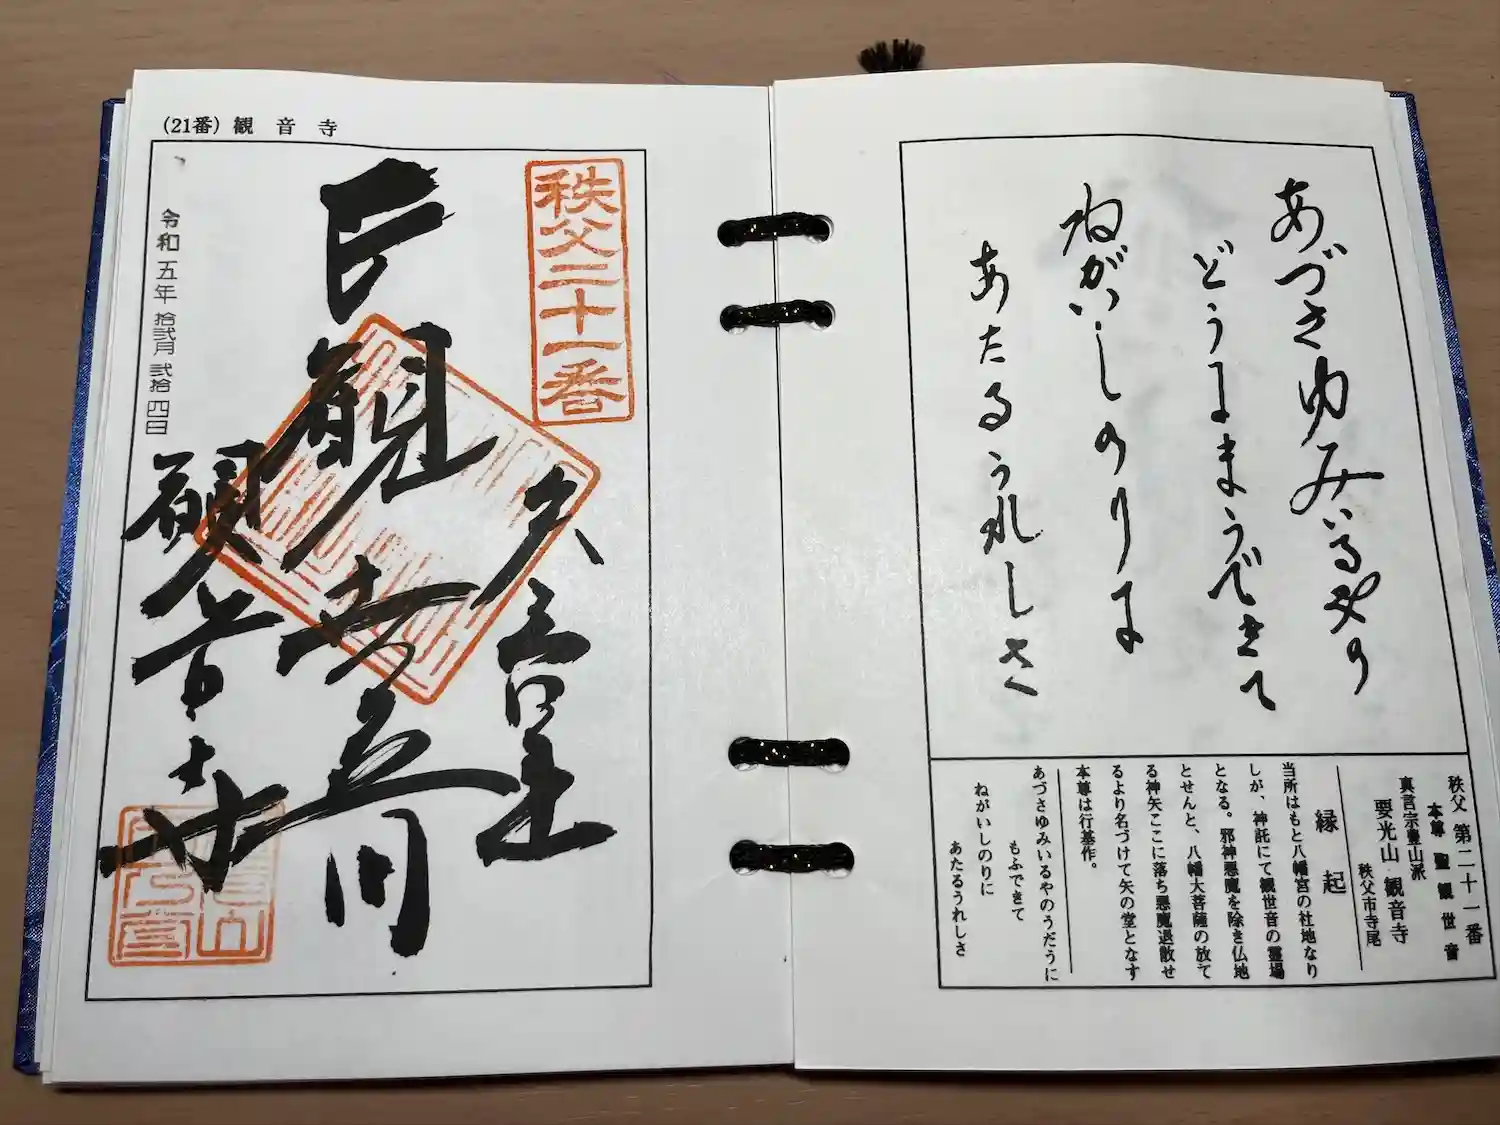 あづさゆみいるやの
どうにまうできて
ねがいしのりに
あたるうれしさ
秩父 第二十一番
本尊 聖観世音
真言宗豊山派
要光山 観音寺
秩父市寺尾
縁起
当所はもと八幡宮の社地なり
しが、神託にて観世音の霊場
となる。邪神悪魔を除き仏地
とせんと、八幡大菩薩の放て
る神矢ここに落ち悪魔退散せ
るより名づけて矢の堂となす
本尊は行基作。
あづさゆみいるやのうだうに
もふできて
ねがいしのりに
あたるうれしさ
(21番) 観音寺
秩父二十一番
観音寺
令和五年 拾弐月 弐拾四日